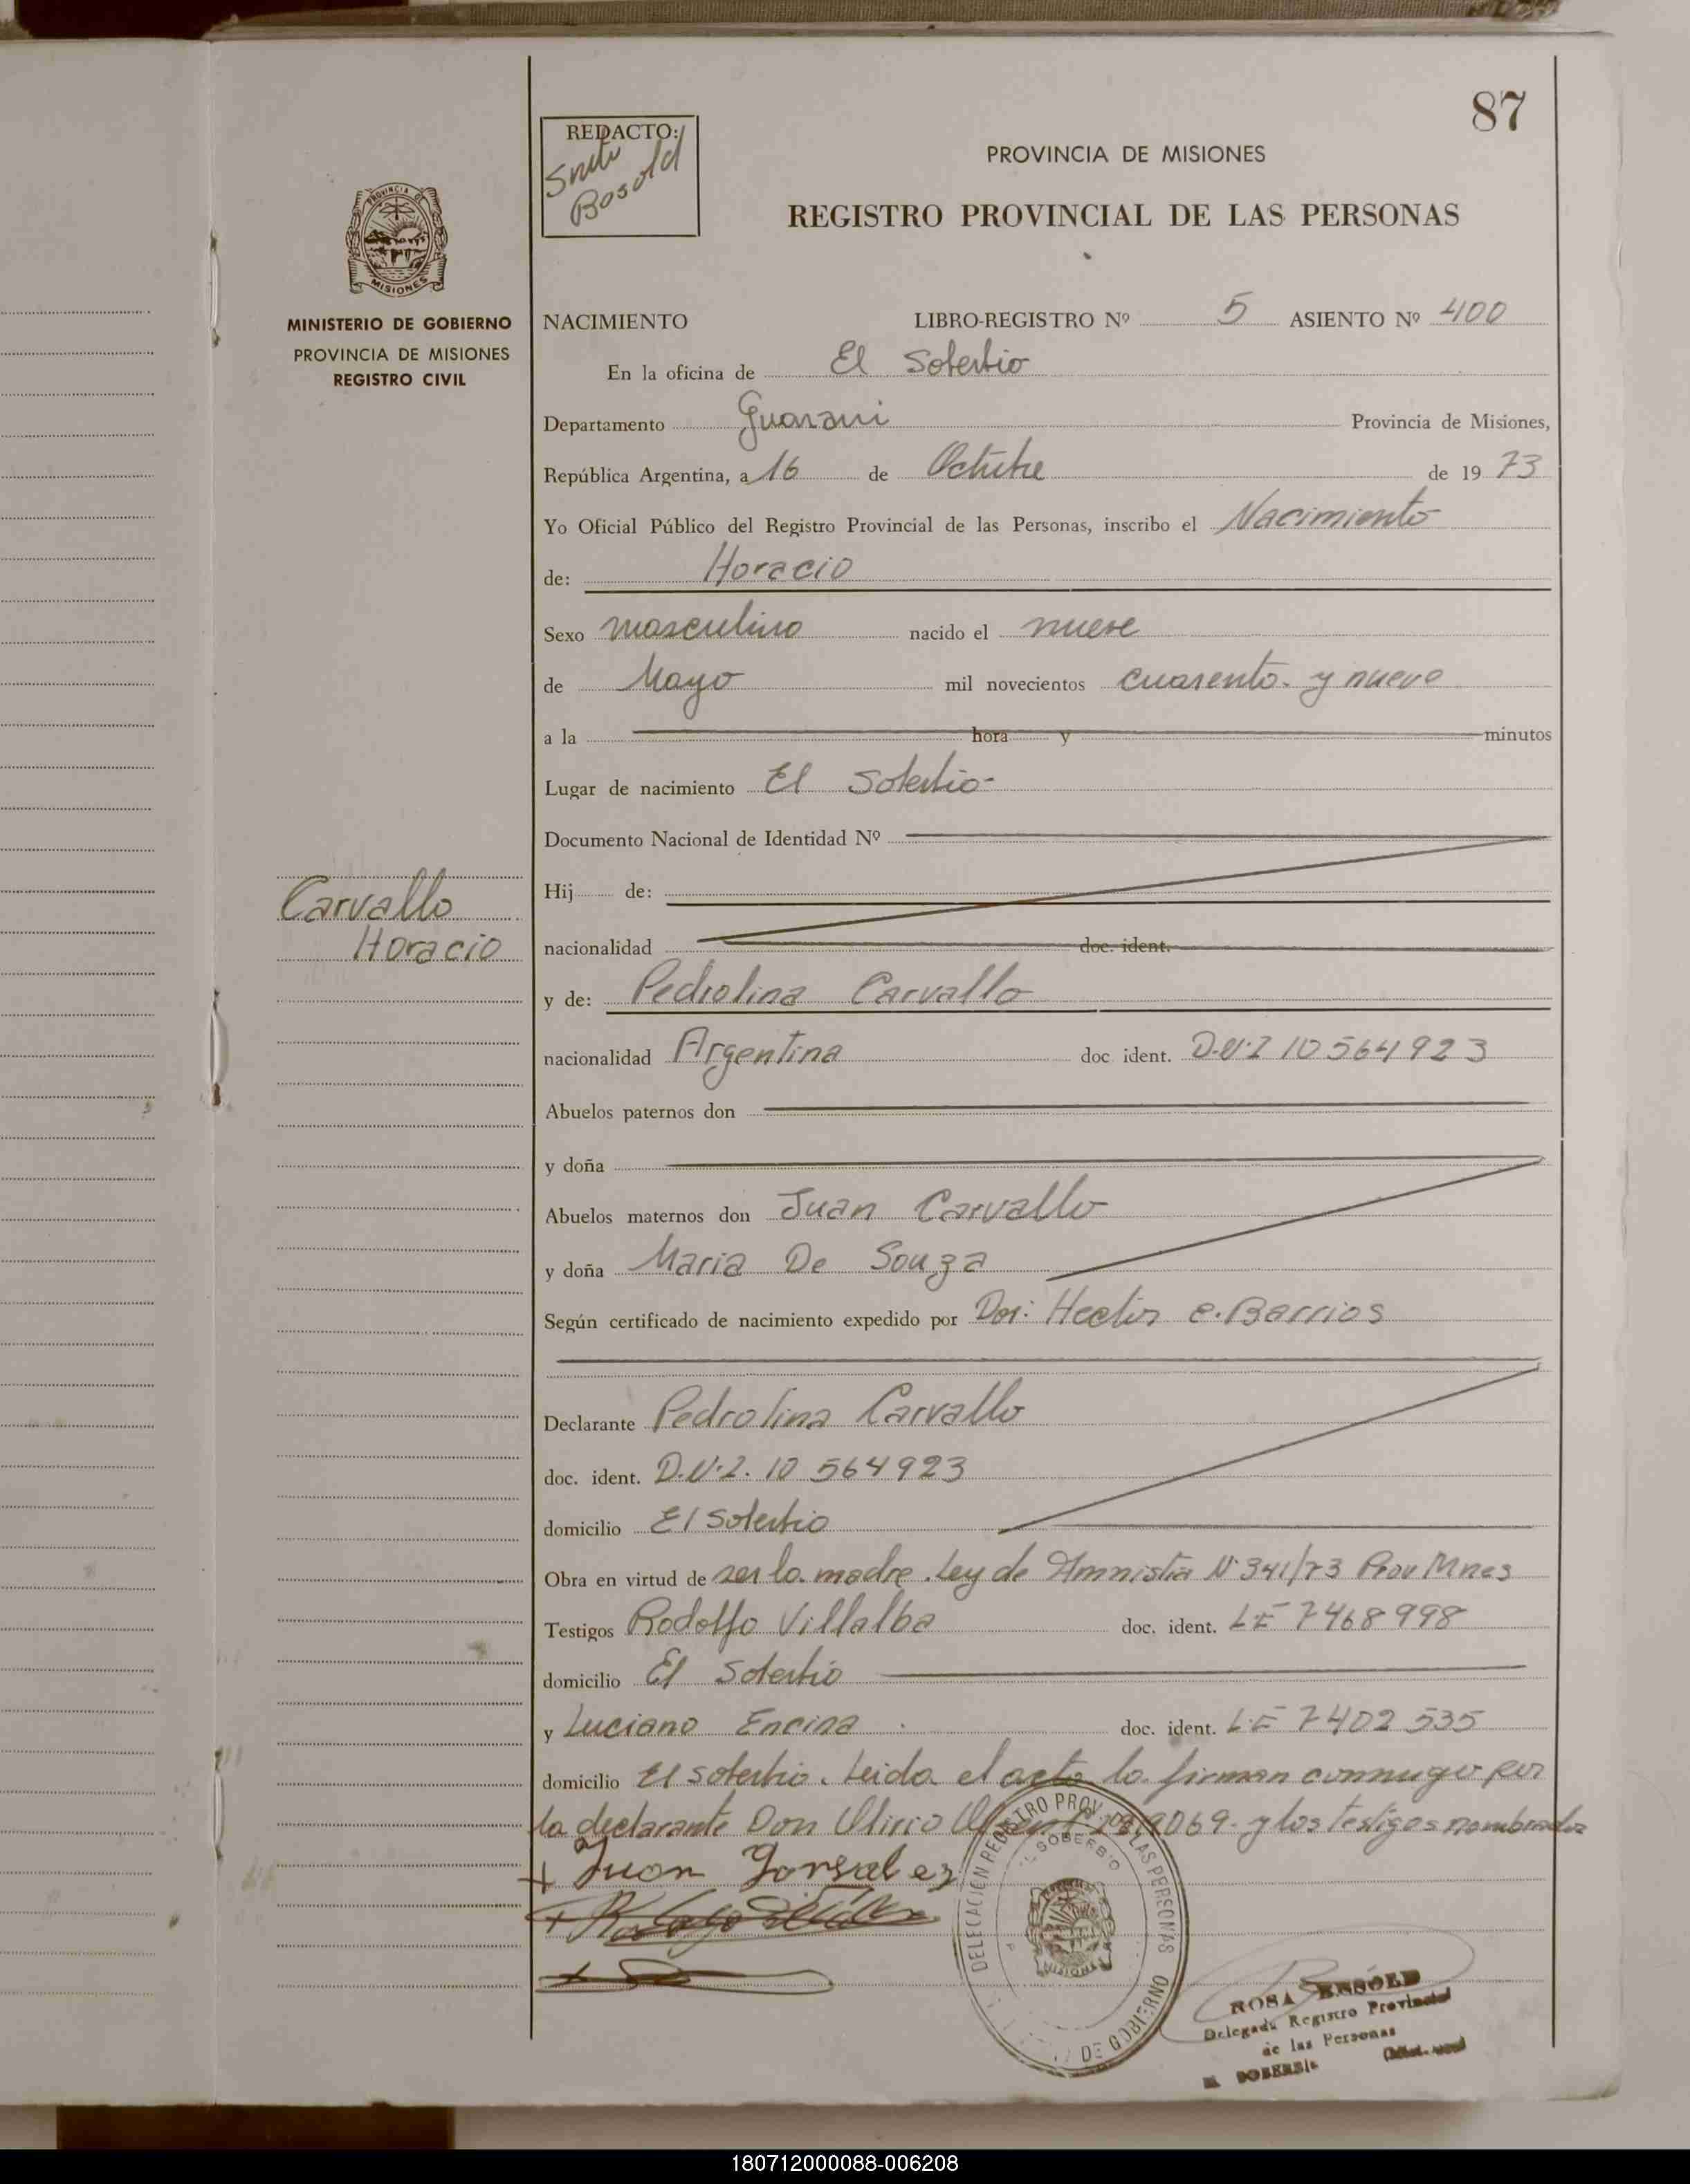 87
REDACTO:
Bosold
PROVINCIA DE MISIONES
REGISTRO PROVINCIAL DE LAS PERSONAS
PROVINCIA DE
MISIONES
MINISTERIO DE GOBIERNO
PROVINCIA DE MISIONES
REGISTRO CIVIL
NACIMIENTO LIBRO-REGISTRO Nº 5 ASIENTO Nº 400
En la oficina de El Soberbio
Departamento Guarani Provincia de Misiones,
República Argentina, a 16 de Octubre de 19 73
Yo Oficial Público del Registro Provincial de las Personas, inscribo el Nacimiento
de: Horacio
Sexo masculino nacido el nueve
de Mayo mil novecientos cuarenta y nueve
a la hora y minutos
Lugar de nacimiento El Soberbio
Documento Nacional de Identidad Nº
Carvallo
Horacio
Hij de:
nacionalidad doc. ident.
y de: Pedrolina Carvallo
nacionalidad Argentina doc ident. D.N.I 10564923
Abuelos paternos don
y doña
Abuelos maternos don Juan Carvallo
y doña Maria De Souza
Según certificado de nacimiento expedido por Dor: Hector e. Barrios
Declarante Pedrolina Carvallo
doc. ident. D.N.I. 10 564923
domicilio El Soberbio
Obra en virtud de ser la madre. Ley de Amnistia Nº 341/73 Prov Mnes
Testigos Rodolfo Villalba doc. ident. LE 7468998
domicilio El Soberbio
y Luciano Encina doc. ident. LE 7402535
domicilio El soberbio. Leida el acta la firman conmigo por
la declarante Don 9069. y los testigos nombrados
+ Juan Gonsalez
DELEGACION REGISTRO PROV. LAS PERSONAS
SOBERBIO
MISIONES
DE GOBIERNO
ROSA BESOLD
Delegada Registro Provincial
de las Personas
SOBERBIO
180712000088-006208